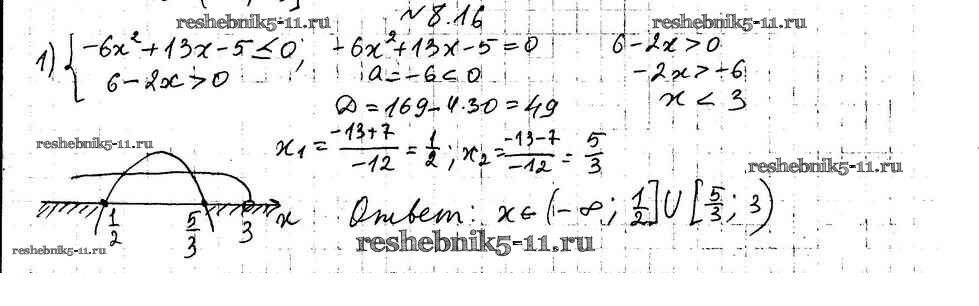 № 8.16
reshebnik5-11.ru
reshebnik5-11.ru
1) { -6x²+13x-5≤0; -6x²+13x-5=0 6-2x>0
6-2x>0 a=-6<0 -2x>-6
D=169-4·30=49 x<3
reshebnik5-11.ru
x₁= (-13+7)/(-12) = 1/2; x₂= (-13-7)/(-12) = 5/3
reshebnik5-11.ru
1/2 5/3 3 x
Ответ: x∈(-∞; 1/2]∪[5/3; 3)
reshebnik5-11.ru
reshebnik5-11.ru